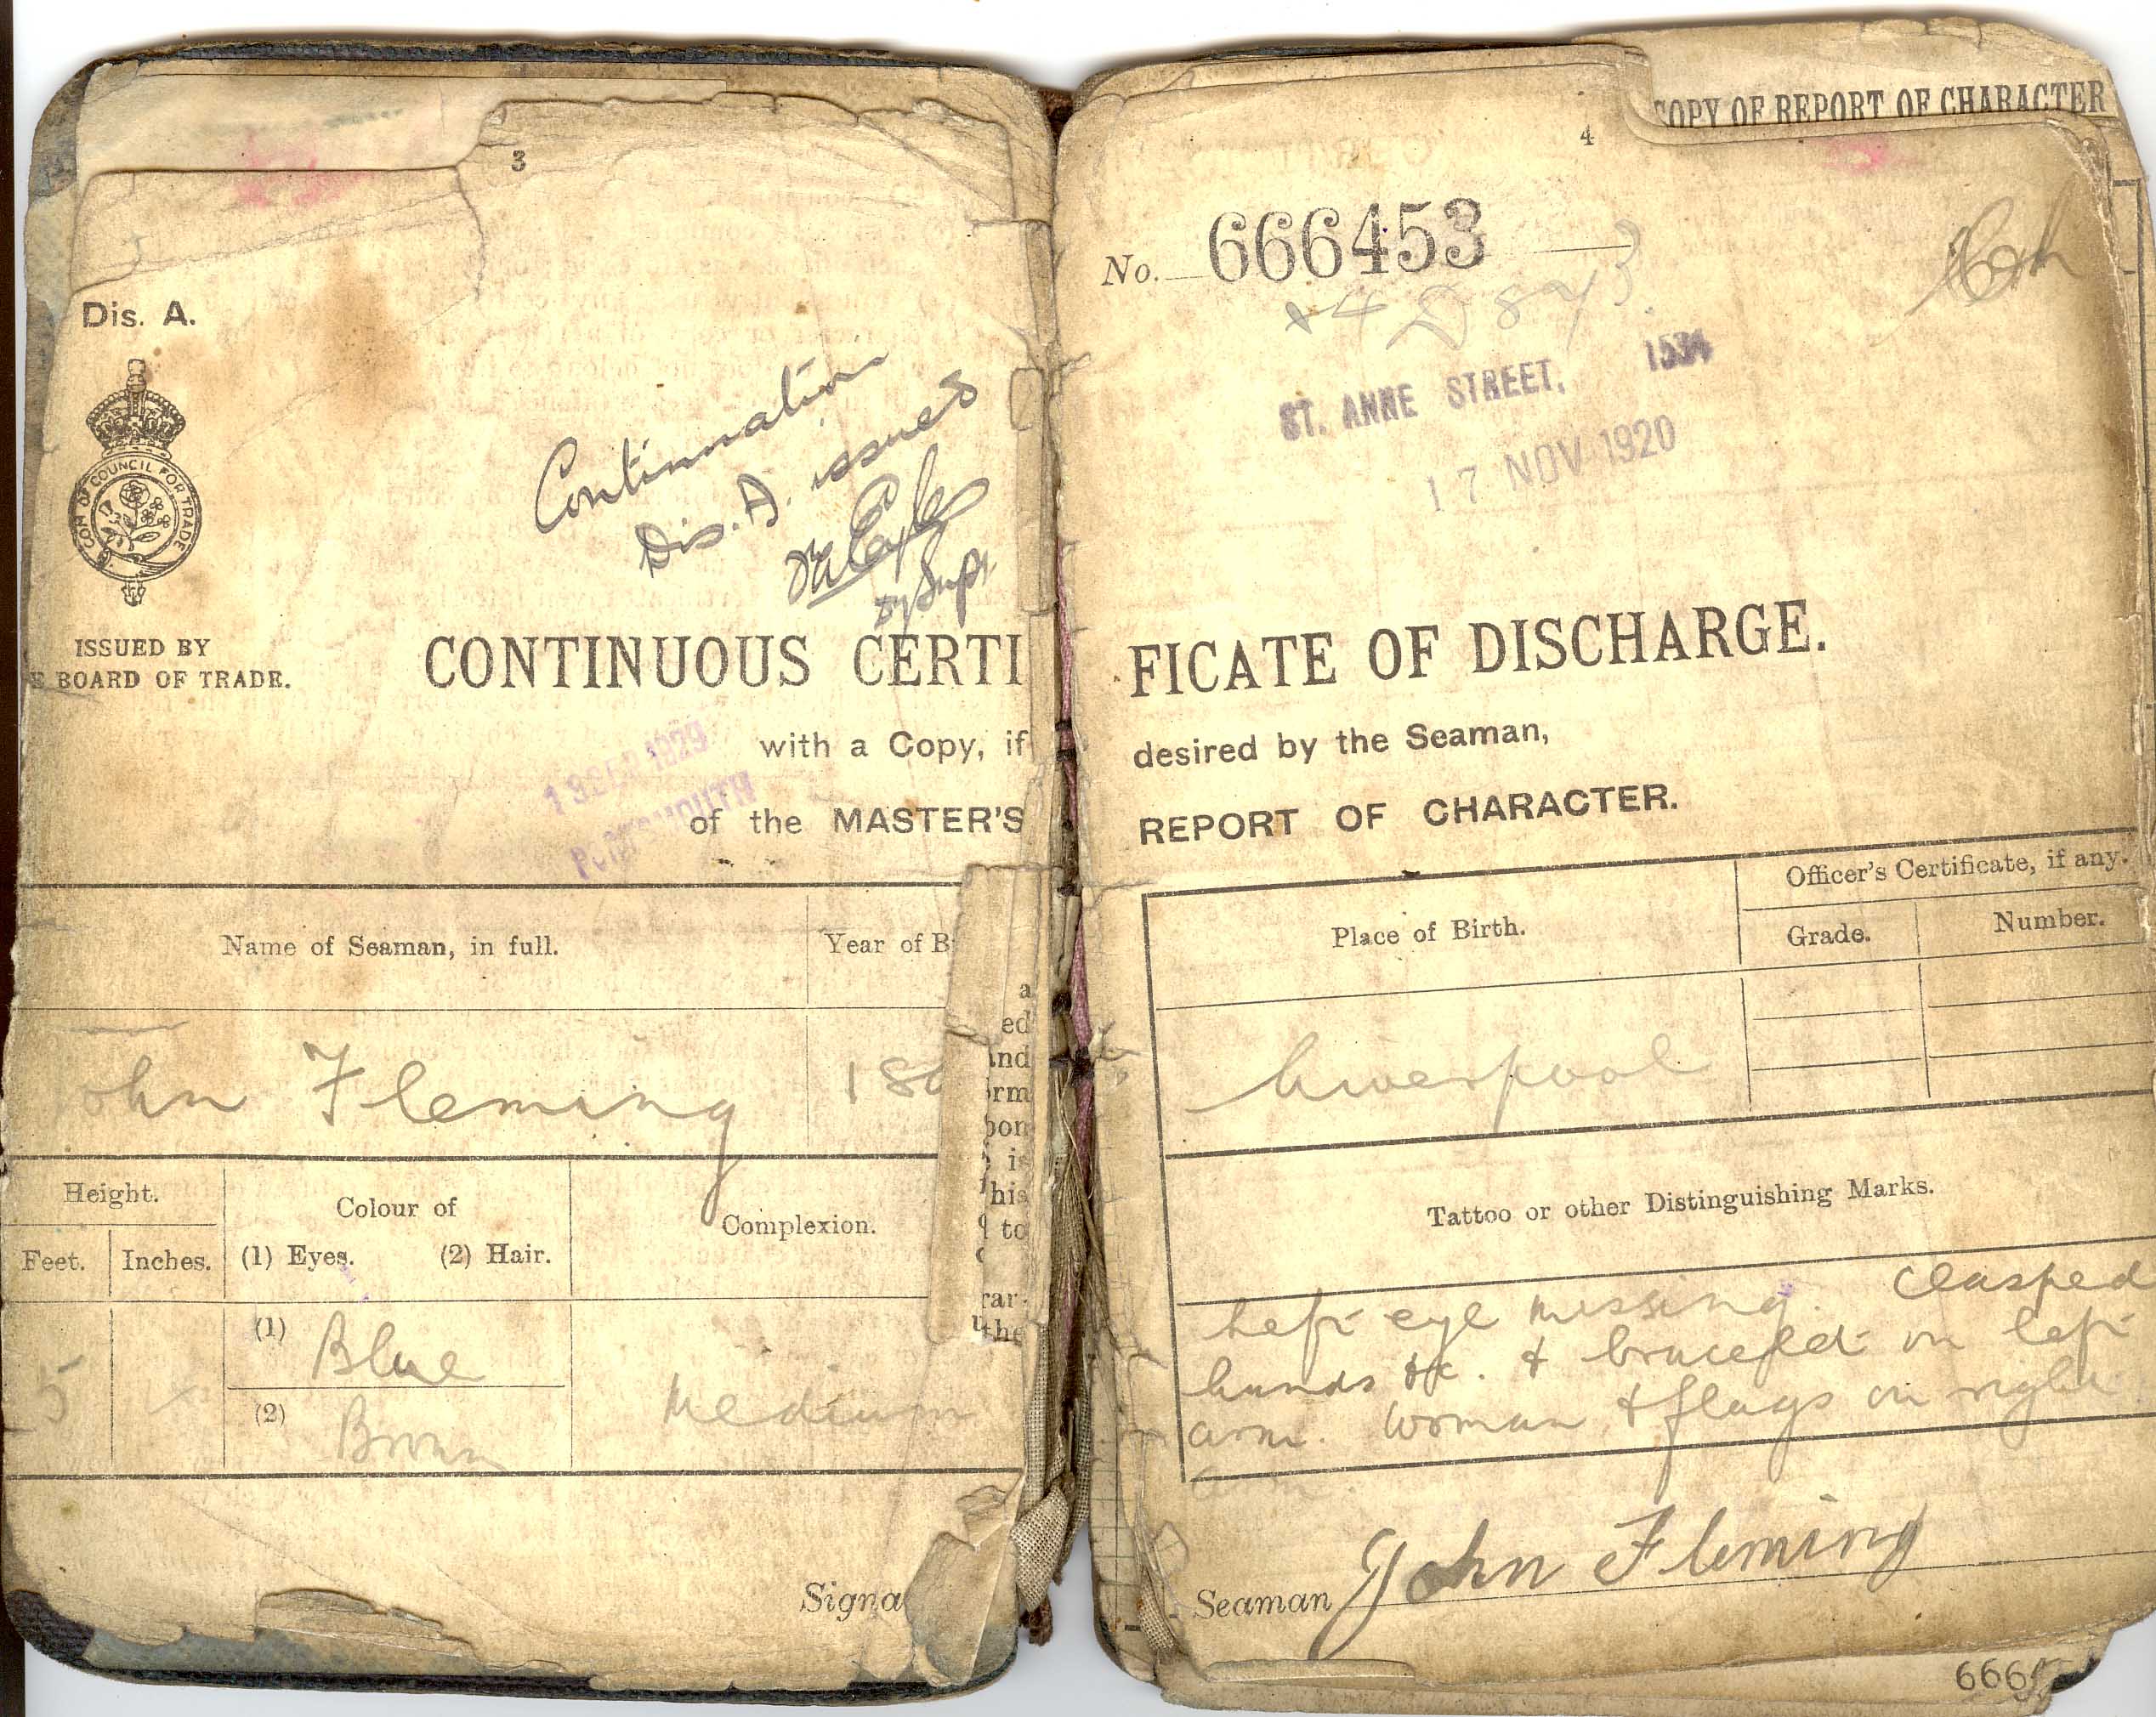 3
Dis. A.
COM OF COUNCIL FOR TRADE
Continuation
Dis. A. issued
Supt.
ISSUED BY
E BOARD OF TRADE.
CONTINUOUS CERTI
13 SEP 1929
PORTSMOUTH
with a Copy, if
of the MASTER'S
Name of Seaman, in full.
Year of B
ohn Fleming
18
Height.
Feet.
Inches.
Colour of
(1) Eyes. (2) Hair.
Complexion.
5
(1) Blue
(2) Brown
Medium
Signa
a
ed
and
orm
pon
is
his
to
rar-
the
COPY OF REPORT OF CHARACTER
4
No. 666453
ST. ANNE STREET, 1534
17 NOV 1920
FICATE OF DISCHARGE.
desired by the Seaman,
REPORT OF CHARACTER.
Place of Birth.
Officer's Certificate, if any.
Grade.
Number.
Liverpool
Tattoo or other Distinguishing Marks.
Left eye missing. Clasped
hands &c. & bracelet on left
arm. Woman & flags on right
arm
Seaman John Fleming
666